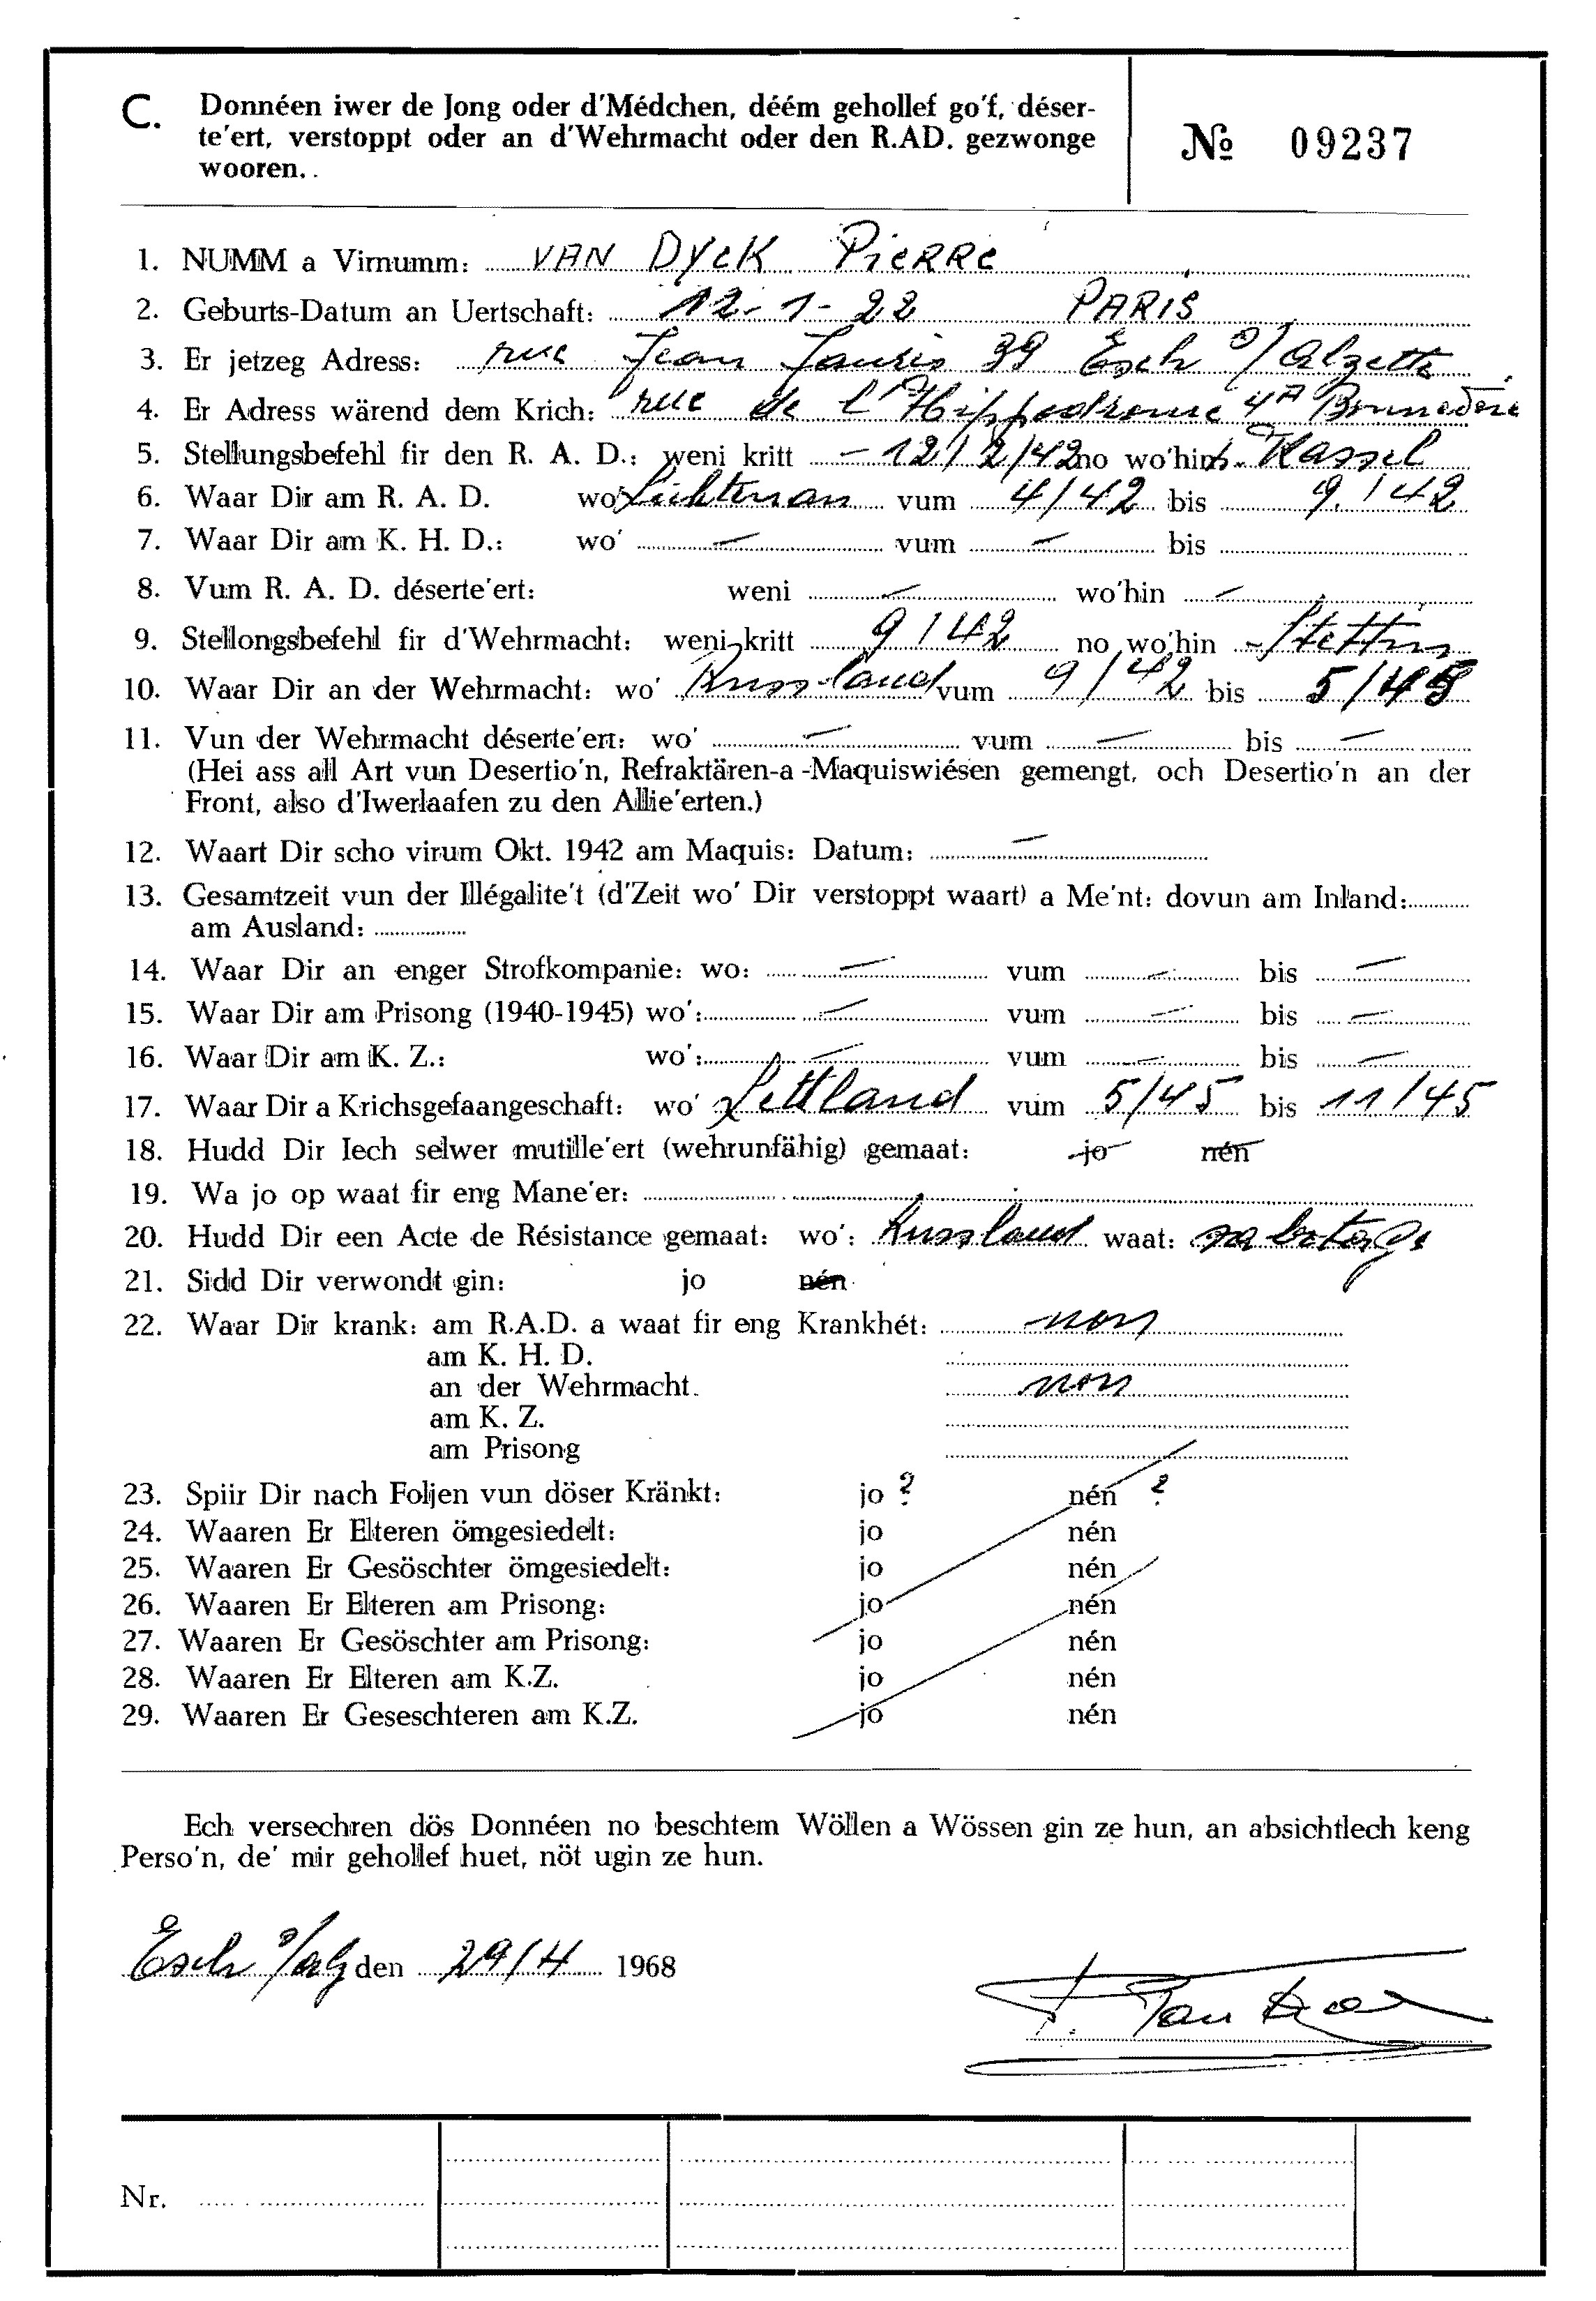 C. Donnéen iwer de Jong oder d'Médchen, déém gehollef go'f, déser-
te'ert, verstoppt oder an d'Wehrmacht oder den R.AD. gezwonge
wooren.
№ 09237
1. NUMM a Virnumm: VAN DYCK PIERRE
2. Geburts-Datum an Uertschaft: 12-1-22 PARIS
3. Er jetzeg Adress: rue Jean Jaurès 39 Esch s/Alzette
4. Er Adress wärend dem Krich: rue de l'Hippodrome 4A Bonnevoie
5. Stellungsbefehl fir den R. A. D.: weni kritt -12/2/42 no wo'hin Kassel
6. Waar Dir am R. A. D. wo' Lichtenau vum 4/42 bis 9/42
7. Waar Dir am K. H. D.: wo' — vum — bis
8. Vum R. A. D. déserte'ert: weni — wo'hin —
9. Stellongsbefehl fir d'Wehrmacht: weni kritt 9/42 no wo'hin Stettin
10. Waar Dir an der Wehrmacht: wo' Russland vum 9/42 bis 5/45
11. Vun der Wehrmacht déserte'ert: wo' — vum — bis —
(Hei ass all Art vun Desertio'n, Refraktären-a -Maquiswiésen gemengt, och Desertio'n an der
Front, also d'Iwerlaafen zu den Allie'erten.)
12. Waart Dir scho virum Okt. 1942 am Maquis: Datum: —
13. Gesamtzeit vun der Illégalite't (d'Zeit wo' Dir verstoppt waart) a Me'nt: dovun am Inland:
am Ausland:
14. Waar Dir an enger Strofkompanie: wo: — vum — bis —
15. Waar Dir am Prisong (1940-1945) wo': — vum — bis —
16. Waar Dir am K. Z.: wo': — vum — bis —
17. Waar Dir a Krichsgefaangeschaft: wo' Lettland vum 5/45 bis 11/45
18. Hudd Dir Iech selwer mutille'ert (wehrunfähig) gemaat: jo nén
19. Wa jo op waat fir eng Mane'er:
20. Hudd Dir een Acte de Résistance gemaat: wo': Russland waat: sabotage
21. Sidd Dir verwondt gin: jo nén
22. Waar Dir krank: am R.A.D. a waat fir eng Krankhét: non
am K. H. D.
an der Wehrmacht. non
am K. Z.
am Prisong
23. Spiir Dir nach Foljen vun döser Kränkt: jo ? nén ?
24. Waaren Er Elteren ömgesiedelt: jo nén
25. Waaren Er Gesöschter ömgesiedelt: jo nén
26. Waaren Er Elteren am Prisong: jo nén
27. Waaren Er Gesöschter am Prisong: jo nén
28. Waaren Er Elteren am K.Z. jo nén
29. Waaren Er Geseschteren am K.Z. jo nén
Ech versechren dös Donnéen no beschtem Wöllen a Wössen gin ze hun, an absichtlech keng
Perso'n, de' mir gehollef huet, nöt ugin ze hun.
Esch s/Alz den 29/4 1968
Nr.